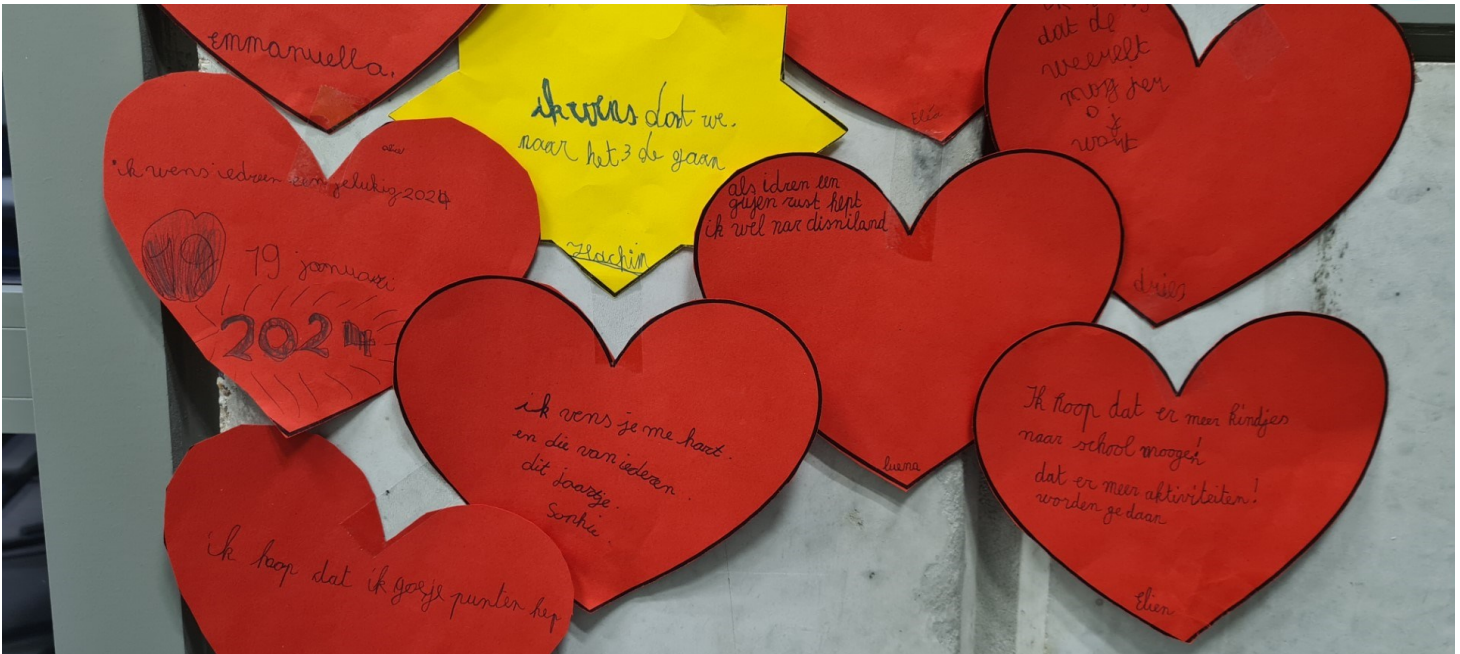 emmanuella.
ik wens dat we.
naar het 3 de gaan
Hachim
Eléa
dat de
weerelt
mog jer
wort
dries
ik wens iedreen een gelukig 2024
19
19 januari
2024
als idren een
gujen rust hept
ik wel nar disniland
luena
ik wens je me hart.
en die van iederen.
dit jaartje.
Sonhie.
Ik hoop dat er meer kindjes
naar school moogen!
dat er meer aktiviteiten!
worden ge daan
Elien
ik hoop dat ik goeje punten hep